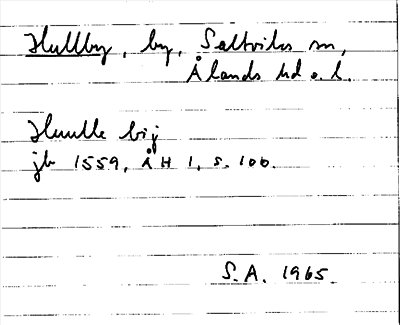 Hullby, by, Saltviks sn,
Ålands hd o. l.
Huulle bÿ
jb 1559, ÅH 1, s. 106.
S.A. 1965.